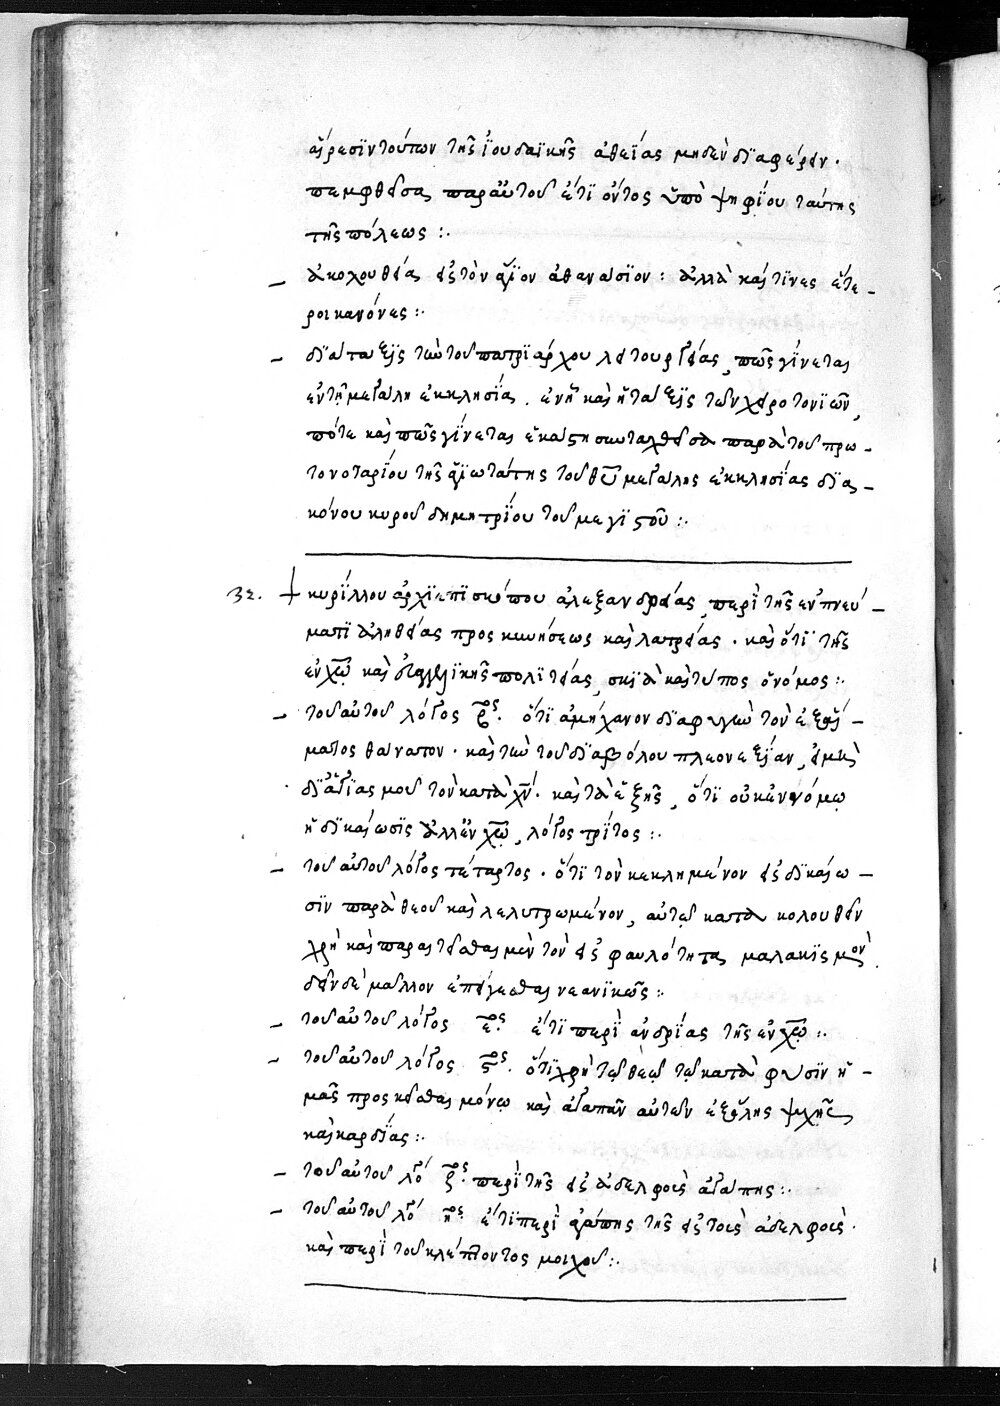 αἵρεσϊν τούτων τῆς ἰουδαϊκῆς ἀθεΐας μηδὲν δϊαφέρειν·
πεμφθεῖσα παρ' αὐτοῦ ἔτϊ ὄντος ὑπὸ ψηφίου ταύτης
τῆς πόλεως :·
– ἀκολουθία εἰς τὸν ἅγϊον ἀθανάσϊον : ἀλλὰ καὶ τϊνὲς ἕτε –
ροι κανόνες :·
– δϊάταξϊς τῶν τοῦ πατρϊάρχου λειτουργίας, πῶς γίνεται
ἐν τῇ μεγάλῃ ἐκκλησίᾳ. ἐν ᾗ καὶ ἡ τάξϊς τῶν χειροτονϊῶν,
πότε καὶ πῶς γίνεται ἑκάστη συνταχθεῖσα παρὰ τοῦ πρω –
τονοταρίου τῆς ἁγϊωτάτης τοῦ θῦ μεγάλης ἐκκλησίας δϊα –
κόνου κυροῦ δημητρίου τοῦ μεγϊστοῦ :·
32. † κυρίλλου ἀρχϊεπϊσκόπου ἀλεξανδρείας, περὶ τῆς ἐν πνεύ –
ματϊ ἀληθείας προσκυνήσεως καὶ λατρείας · καὶ ὅτϊ τῆς
ἐν χῷ καὶ εὐαγγελϊκῆς πολϊτείας, σκϊὰ καὶ τύπος ὁ νόμος :·
– τοῦ αὐτοῦ λόγος β̅ος. ὅτϊ ἀμήχανον δϊαφυγεῖν τὸν ἐξ ἁμαρτή –
ματος θάνατον · καὶ τὴν τοῦ δϊαβόλου πλεονεξίαν, εἰ μὴ
δϊ' ἁγϊασμοῦ τὸν κατὰ χν · καὶ τὰ ἑξῆς, ὅτϊ οὐκ ἐν νόμῳ
ἡ δϊκαίωσϊς ἀλλ' ἐν χῷ, λόγος τρίτος :·
– τοῦ αὐτοῦ λόγος τέταρτος · ὅτϊ τὸν κεκλημένον εἰς δϊκαίω –
σϊν παρὰ θεοῦ καὶ λελυτρωμένον, αὐτῷ κατακολουθεῖν
χρὴ καὶ παραιτεῖσθαι μὲν τὸν εἰς φαυλότητα μαλακϊσμὸν.
δεῖν δὲ μᾶλλον ἐπείγεσθαι νεανϊκῶς :·
– τοῦ αὐτοῦ λόγος ε̅ος. ἔτϊ περὶ ἀνδρίας τῆς ἐν χῷ :·
– τοῦ αὐτοῦ λόγος ς̅ος. ὅτϊ χρὴ τῷ θεῷ τῷ κατὰ φύσϊν ἡ –
μᾶς προσκεῖσθαι μόνῳ καὶ ἀγαπᾶν αὐτὸν ἐξ ὅλης ψυχῆς
καὶ καρδίας :·
– τοῦ αὐτοῦ λόγ ζ̅ος. περὶ τῆς εἰς ἀδελφοὺς ἀγάπης :·
– τοῦ αὐτοῦ λόγ η̅ος. ἔτϊ περὶ ἀγάπης τῆς εἰς τοὺς ἀδελφοὺς.
καὶ περὶ τοῦ κλέπτοντος μόσχον :·